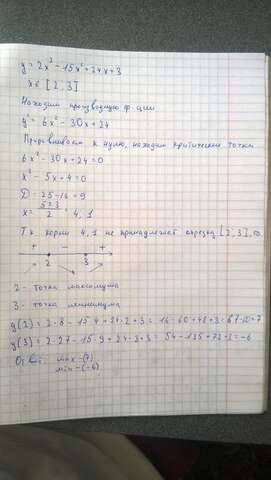 y = 2x³ - 15x² + 24x + 3
x ∈ [2, 3]
Находим производную ф-ции
y' = 6x² - 30x + 24
Приравниваем к нулю, находим критические точки
6x² - 30x + 24 = 0
x² - 5x + 4 = 0
D = 25 - 16 = 9
x = (5 ± 3)/2 = 4, 1
Т.к. корни 4, 1 не принадлежат отрезку [2, 3], то
+ - +
2 3
2 - точка максимума
3 - точка минимума
y(2) = 2·8 - 15·4 + 24·2 + 3 = 16 - 60 + 48 + 3 = 67 - 60 = 7
y(3) = 2·27 - 15·9 + 24·3 + 3 = 54 - 135 + 72 + 3 = -6
Ответ: max - (7)
min - (-6)